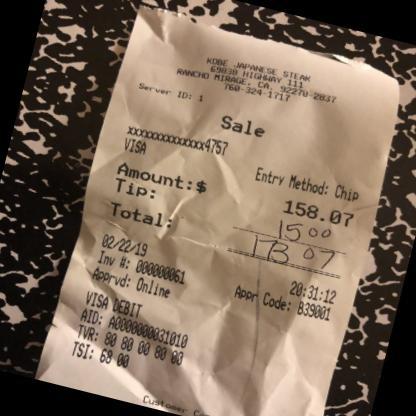 KOBE JAPANESE STEAK
69838 HIGHWAY 111
RANCHO MIRAGE, CA. 92270-2837
760-324-1717
Server ID: 1
Sale
xxxxxxxxxxxxxx4757
VISA Entry Method: Chip
Amount:$ 158.07
Tip: 15 00
Total: 173 07
02/22/19 20:31:12
Inv #: 00000061 Appr Code: B39001
Apprvd: Online
VISA DEBIT
AID: A0000000031010
TVR: 80 80 00 80 00
TSI: 68 00
Customer